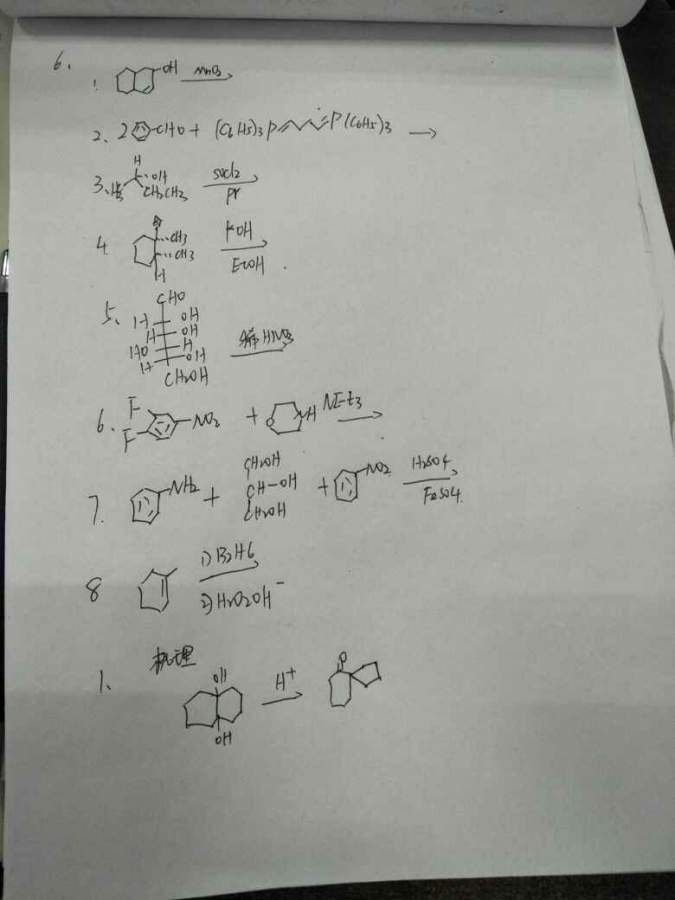 6.
1. OH MnO2
2. 2 CHO + (C6H5)3P P(C6H5)3
3. H OH H3C CH2CH3 SOCl2 Pr
4. Br CH3 CH3 H KOH EtOH
5. CHO H OH H OH HO H H OH CH2OH 稀HNO3
6. F F NO2 + O NH NEt3
7. NH2 + CH2OH CH-OH CH2OH + NO2 H2SO4 FeSO4
8 1) B2H6 2) H2O2OH-
机理
1. OH OH H+ O